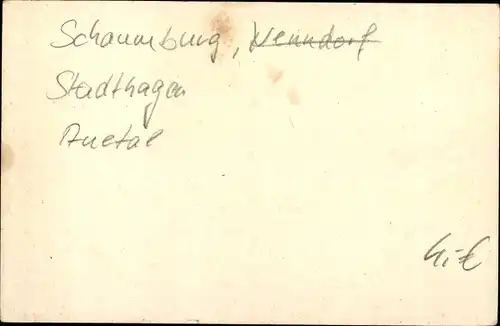 Schaumburg, Nenndorf
Stadthagen
Auetal